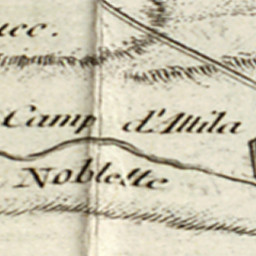 Camp d'Attila
Noblette